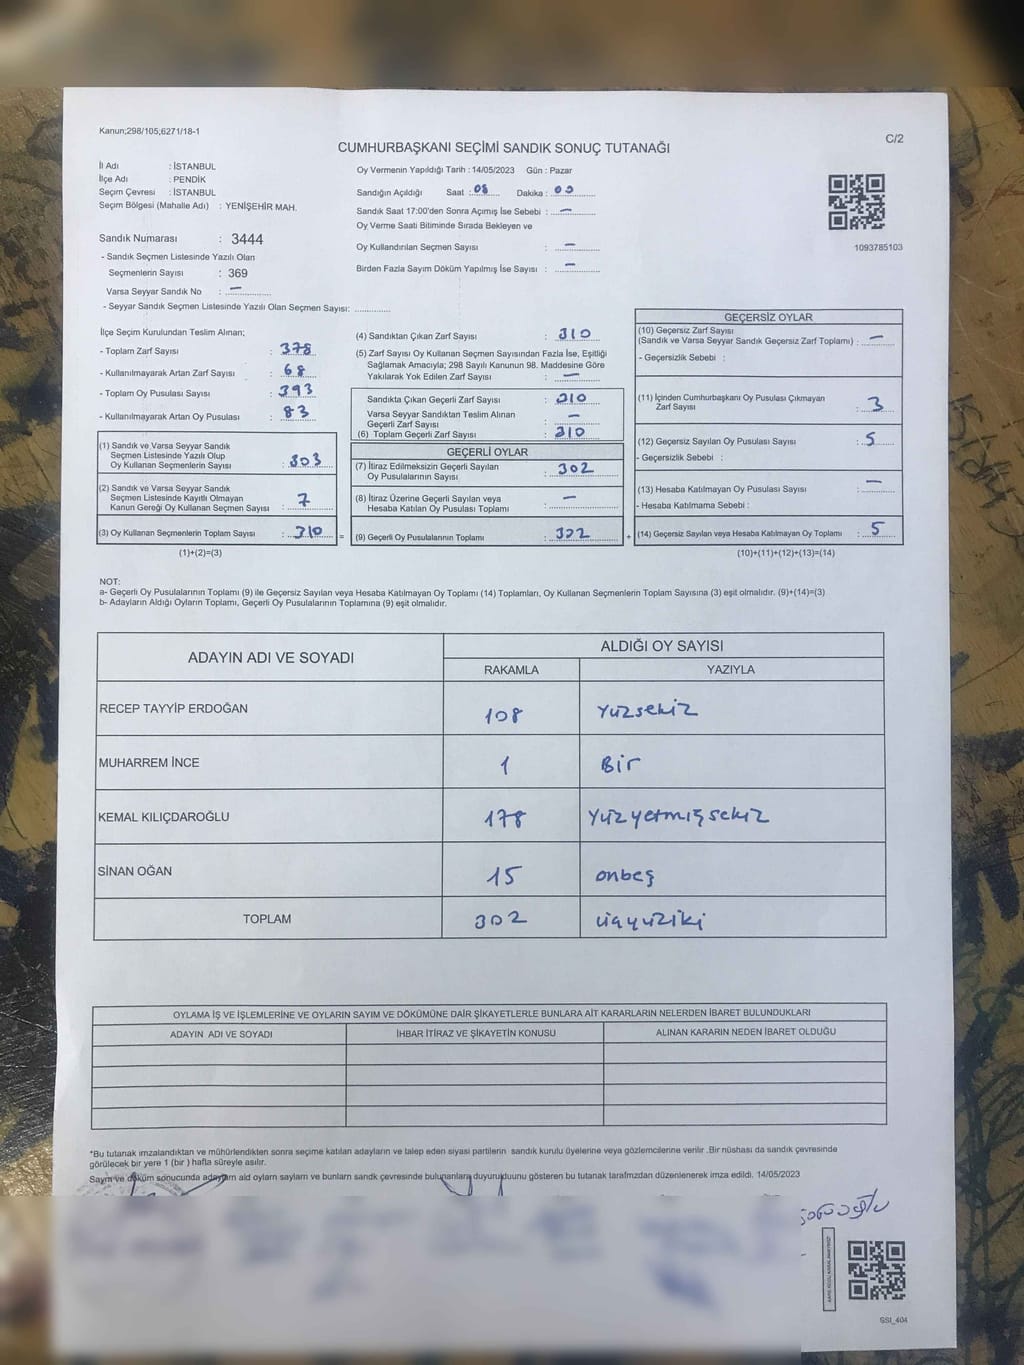 Kanun;298/105;6271/18-1
C/2
CUMHURBAŞKANI SEÇİMİ SANDIK SONUÇ TUTANAĞI
İl Adı : İSTANBUL
İlçe Adı : PENDİK
Seçim Çevresi : İSTANBUL
Seçim Bölgesi (Mahalle Adı) : YENİŞEHİR MAH.
Oy Vermenin Yapıldığı Tarih : 14/05/2023 Gün : Pazar
Sandığın Açıldığı Saat : 08 Dakika : 00
Sandık Saat 17:00'den Sonra Açımış İse Sebebi : —
Oy Verme Saati Bitiminde Sırada Bekleyen ve
Oy Kullandırılan Seçmen Sayısı : —
Birden Fazla Sayım Döküm Yapılmış İse Sayısı : —
1093785103
Sandık Numarası : 3444
- Sandık Seçmen Listesinde Yazılı Olan
Seçmenlerin Sayısı : 369
Varsa Seyyar Sandık No : —
- Seyyar Sandık Seçmen Listesinde Yazılı Olan Seçmen Sayısı:
İlçe Seçim Kurulundan Teslim Alınan;
- Toplam Zarf Sayısı : 378
- Kullanılmayarak Artan Zarf Sayısı : 68
- Toplam Oy Pusulası Sayısı : 393
- Kullanılmayarak Artan Oy Pusulası : 83
(1) Sandık ve Varsa Seyyar Sandık
Seçmen Listesinde Yazılı Olup
Oy Kullanan Seçmenlerin Sayısı : 303
(2) Sandık ve Varsa Seyyar Sandık
Seçmen Listesinde Kayıtlı Olmayan
Kanun Gereği Oy Kullanan Seçmen Sayısı : 7
(3) Oy Kullanan Seçmenlerin Toplam Sayısı : 310 =
(1)+(2)=(3)
(4) Sandıktan Çıkan Zarf Sayısı : 310
(5) Zarf Sayısı Oy Kullanan Seçmen Sayısından Fazla İse, Eşitliği
Sağlamak Amacıyla; 298 Sayılı Kanunun 98. Maddesine Göre
Yakılarak Yok Edilen Zarf Sayısı : —
Sandıkta Çıkan Geçerli Zarf Sayısı : 310
Varsa Seyyar Sandıktan Teslim Alınan
Geçerli Zarf Sayısı : —
(6) Toplam Geçerli Zarf Sayısı : 310
GEÇERLİ OYLAR
(7) İtiraz Edilmeksizin Geçerli Sayılan
Oy Pusulasının Sayısı : 302
(8) İtiraz Üzerine Geçerli Sayılan veya
Hesaba Katılan Oy Pusulası Toplamı : —
(9) Geçerli Oy Pusulalarının Toplamı : 302 +
GEÇERSİZ OYLAR
(10) Geçersiz Zarf Sayısı
(Sandık ve Varsa Seyyar Sandık Geçersiz Zarf Toplamı) : —
- Geçersizlik Sebebi :
(11) İçinden Cumhurbaşkanı Oy Pusulası Çıkmayan
Zarf Sayısı : 3
(12) Geçersiz Sayılan Oy Pusulası Sayısı : 5
- Geçersizlik Sebebi :
(13) Hesaba Katılmayan Oy Pusulası Sayısı : —
- Hesaba Katılmama Sebebi :
(14) Geçersiz Sayılan veya Hesaba Katılmayan Oy Toplamı : 5
(10)+(11)+(12)+(13)=(14)
NOT:
a- Geçerli Oy Pusulalarının Toplamı (9) ile Geçersiz Sayılan veya Hesaba Katılmayan Oy Toplamı (14) Toplamları, Oy Kullanan Seçmenlerin Toplam Sayısına (3) eşit olmalıdır. (9)+(14)=(3)
b- Adayların Aldığı Oyların Toplamı, Geçerli Oy Pusulalarının Toplamına (9) eşit olmalıdır.
ADAYIN ADI VE SOYADI
ALDIĞI OY SAYISI
RAKAMLA YAZIYLA
RECEP TAYYİP ERDOĞAN 108 yüzsekiz
MUHARREM İNCE 1 Bir
KEMAL KILIÇDAROĞLU 178 yüzyetmişsekiz
SİNAN OĞAN 15 onbeş
TOPLAM 302 üçyüziki
OYLAMA İŞ VE İŞLEMLERİNE VE OYLARIN SAYIM VE DÖKÜMÜNE DAİR ŞİKAYETLERLE BUNLARA AİT KARARLARIN NELERDEN İBARET BULUNDUKLARI
ADAYIN ADI VE SOYADI İHBAR İTİRAZ VE ŞİKAYETİN KONUSU ALINAN KARARIN NEDEN İBARET OLDUĞU
*Bu tutanak imzalandıktan ve mühürlendikten sonra seçime katılan adayların ve talep eden siyasi partilerin sandık kurulu üyelerine veya gözlemcilerine verilir .Bir nüshası da sandık çevresinde
görülecek bir yere 1 (bir ) hafta süreyle asılır.
Sayım ve döküm sonucunda adayların ald oyların sayların ve bunların sandık çevresinde bulunanlara duyurulduunu gösteren bu tutanak tarafımzdan düzenlenerek imza edildi. 14/05/2023
SSI_404